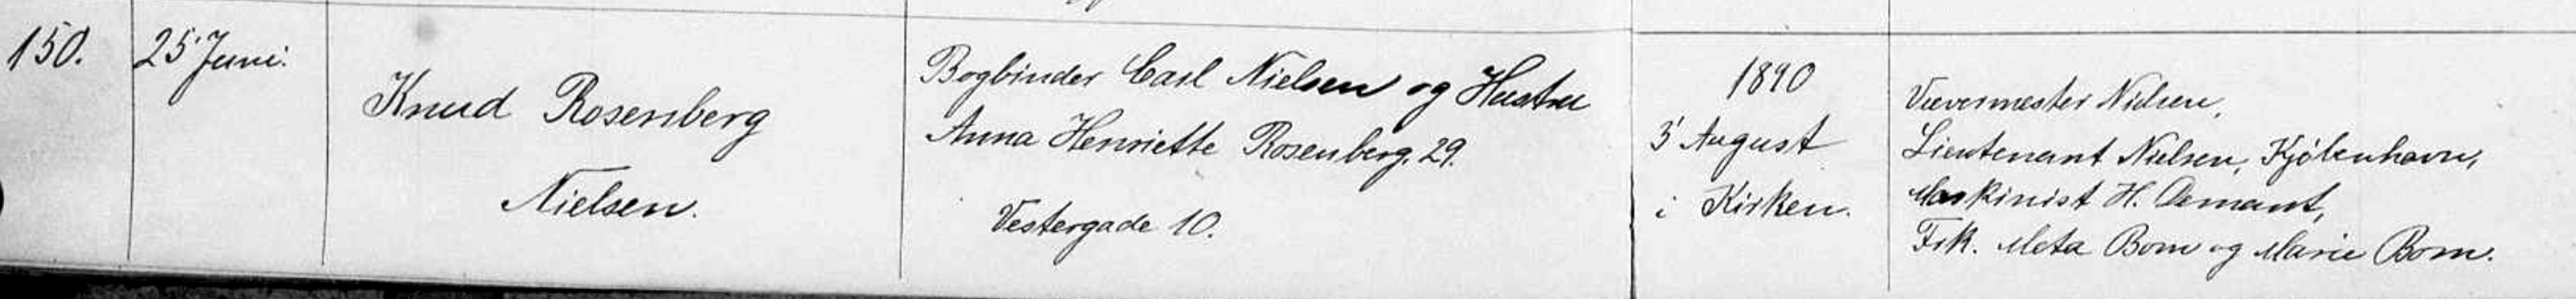 150.
25' Juni.
Knud Rosenberg
Nielsen.
Bogbinder Carl Nielsen og Hustru
Anna Henriette Rosenberg. 29.
Vestergade 10.
1890
3' August
i Kirken.
Vævermester Nielsen,
Lieutenant Nielsen, Kjöbenhavn,
Maskinist H. Demant,
Frk. Meta Bom og Marie Bom.